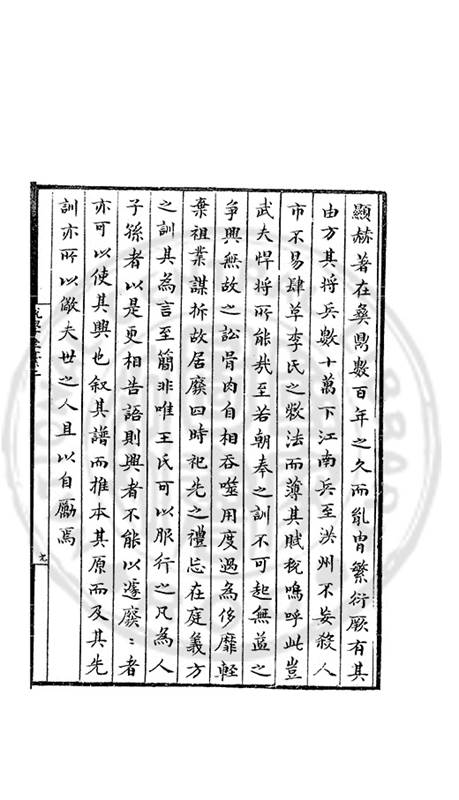 顯赫著在彝鼎數百年之久而胤胄繁衍厥有其
由方其將兵數十萬下江南兵至洪州不妄殺人
市不易肆革李氏之敝法而薄其賦稅嗚呼此豈
武夫悍將所能哉至若朝奉之訓不可起無益之
爭興無故之訟骨肉自相吞噬用度過為侈靡輕
棄祖業謀拆故居廢四時祀先之禮忘在庭義方
之訓其為言至簡非唯王氏可以服行之凡為人
子孫者以是更相告語則興者不能以遽廢〻者
亦可以使其興也叙其譜而推本其原而及其先
訓亦所以儆夫世之人且以自勵焉
九